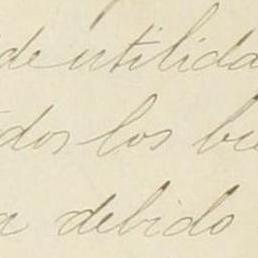 de utilida
dos los bu
a debido